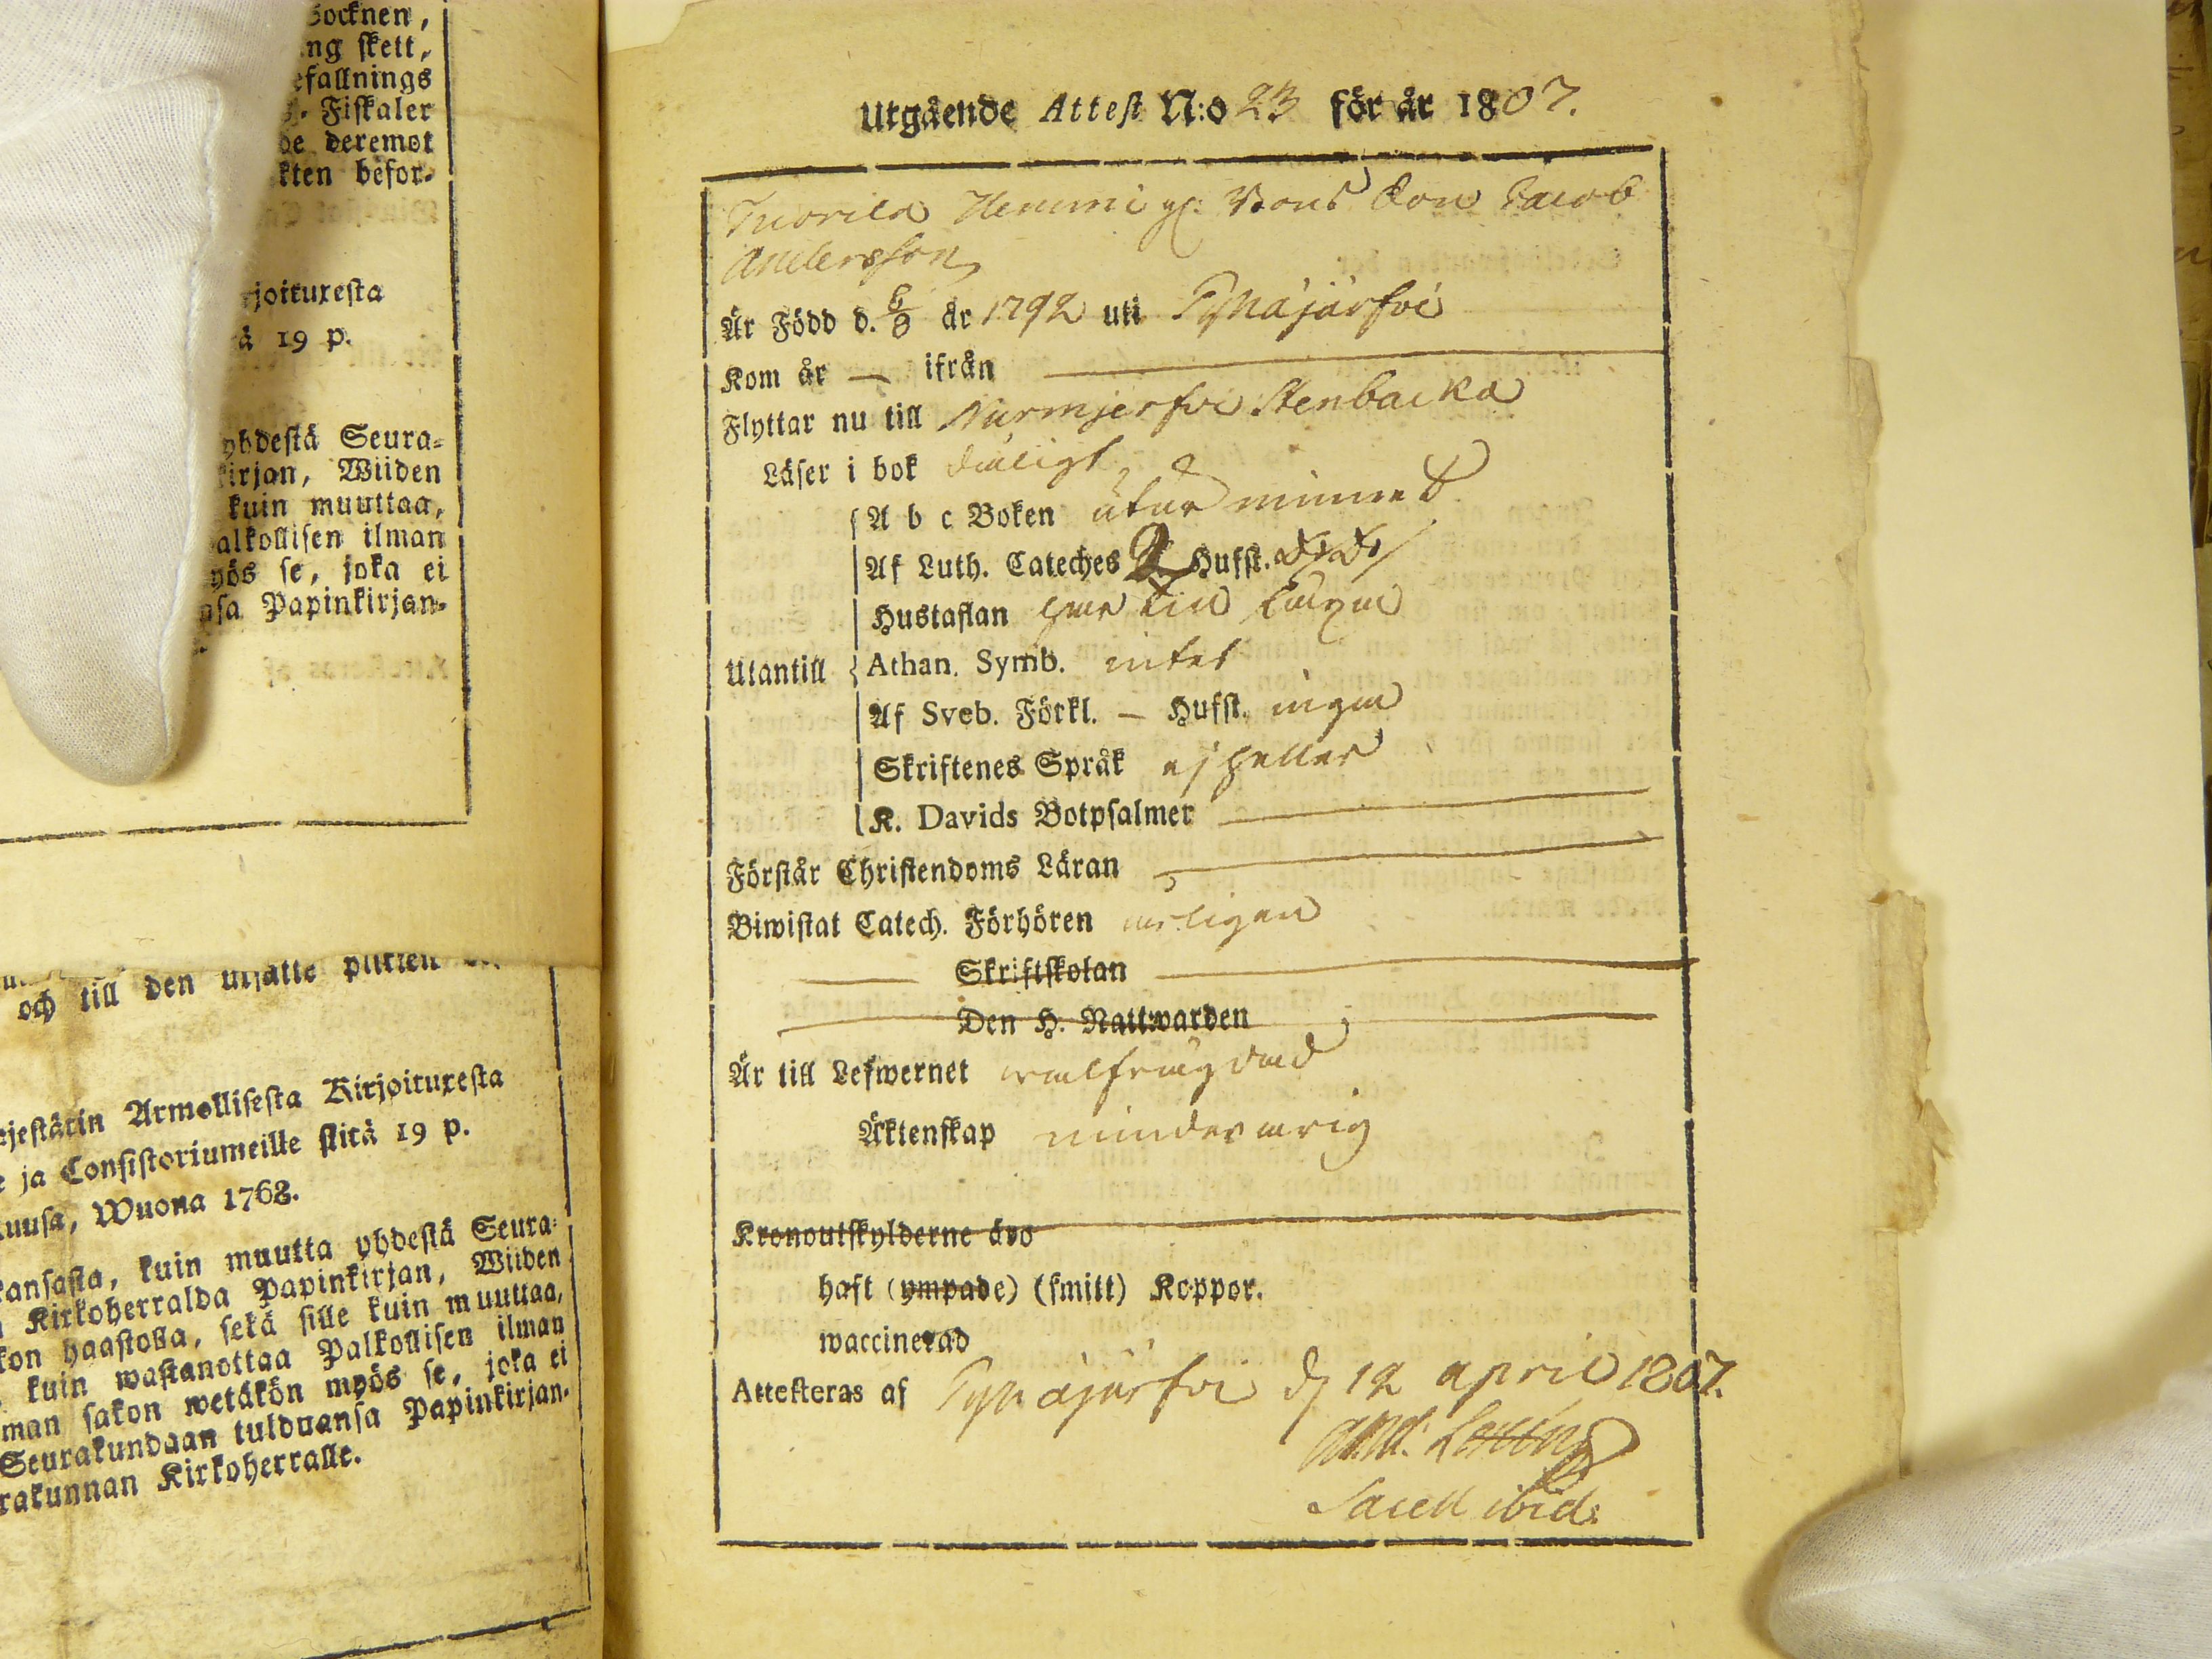 Socknen,
ng skett,
efallnings
Fiskaler
de deremot
kten befor-
rjoituxesta
ä 19 p.
yhdestä Seura-
kirjan, Wiiden
kuin muuttaa,
alkollisen ilman
yös se, joka ei
nsa Papinkirjan-
och till den utsatte
ejestätin Armollisesta Kirjoituxesta
e ja Consistoriumeille siitä 19 p.
kuusa, Wuona 1768.
kansasta, kuin muutta yhdestä Seura-
Kirkoherralda Papinkirjan, Wiiden
kon haastolla, sekä sille kuin muuttaa,
kuin wastanottaa Palkollisen ilman
man sakon wetäkön myös se, joka ei
Seurakundaan tulduansa Papinkirjan-
rakunnan Kirkoherralle.
Utgående Attest N:o 23 för år 1807.
Tuorila Hemmi Bonds Son Jacob
Andersson
Är Född d. 6/8 år 1792 uti Pyhäjärfvi
Kom år — ifrån —
Flyttar nu till Nurmjerfvi Stenbacka
Läser i bok dåligt
Utantill
A b c Boken utur minnet
Af Luth. Cateches 2 Hufst.
Hustaflan
Athan. Symb. intet
Af Sveb. Förkl. — Hufst. ingen
Skriftenes Språk ej heller
K. Davids Botpsalmer —
Förstår Christendoms Läran —
Biwistat Catech. Förhören årligen
— Skriftskolan —
— Den H. Nattwarden —
Är till Lefwernet wälfrägdad
Äktenskap minderårig
Kronoutskylderne äro
haft (ympade) (smitt) Koppor.
waccinerad
Attesteras af Pyhäjärfvi d 12 april 1807.
And.
Sacell ibid: